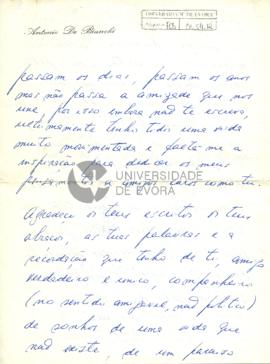 Antonio De Bianchi
UNIVERSIDADE DE ÉVORA
passam os dias, passam os anos
mas não passa a amizade que nos
une, por isso embora não te escreva,
ultimamente tenho tido uma vida
muito movimentada e falta-me a
inspiração para dedicar os meus
pensamentos a amigos caros como tu.
UNIVERSIDADE
DE ÉVORA
Agradeço os teus escritos os teus
abraços, as tuas palavras e a
recordação que tenho de ti, amigo
verdadeiro e unico, companheiro
(no sentido amigavel, não politico)
de sonhos de uma vida que
não existe, de um paraiso